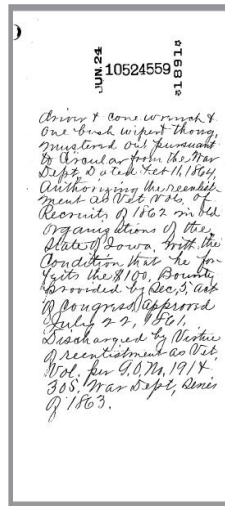 JUN. 24
10524559
1891
driver & cone wrench &
one brush wiper & thong,
mustered out pursuant
to Circular from the War
Dept, Dated Feb 11, 1864,
Authorizing the reenlist-
ment as Vet Vols, of
Recruits of 1862 in old
organizations of the
State of Iowa, with the
Condition that he for-
feits the $100, Bounty
provided by Sec, 5, act
of Congress, approved
July 22, 1861.
Discharged by Virtue
of reenlistment as Vet,
Vol. per G.O. No, 191 &
305, War Dept, Series
of 1863.